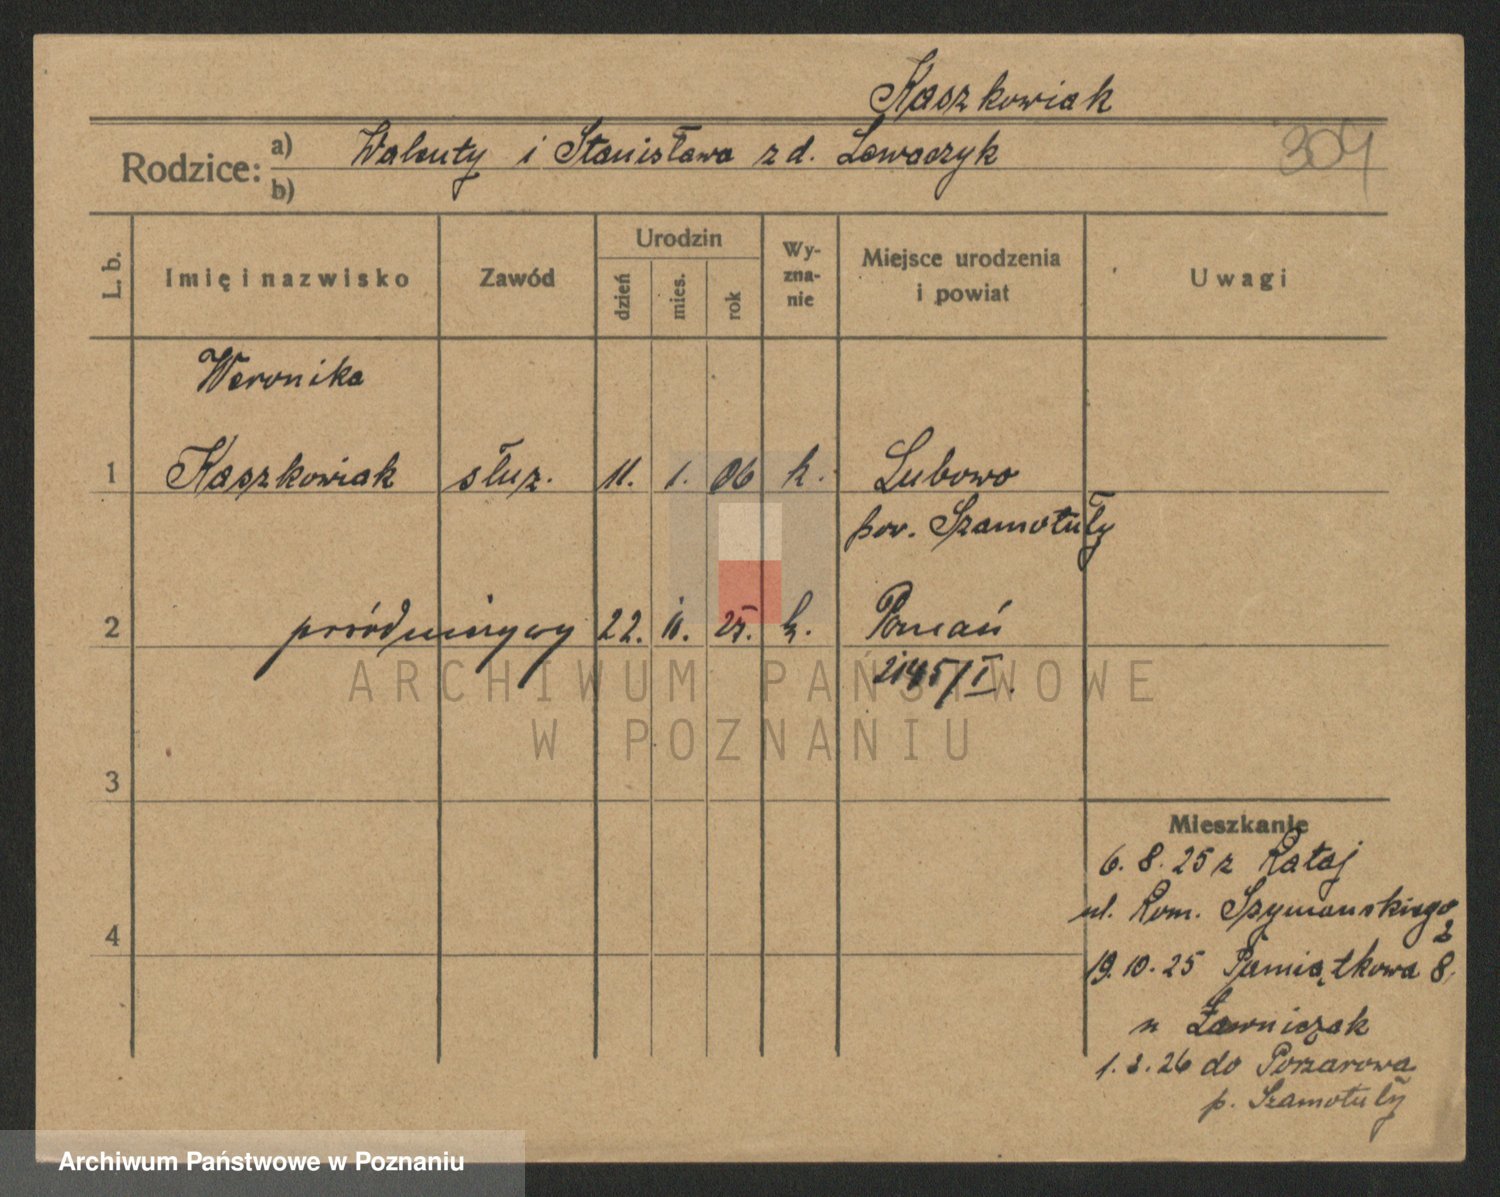 Kaszkowiak
304
Rodzice: a) Walenty i Stanisława z d. Lawaczyk
b)
L. b. Imię i nazwisko Zawód Urodzin dzień mies. rok Wyznanie Miejsce urodzenia i powiat Uwagi
Weronika
1 Kaszkowiak służ. 11. 1. 06 k. Lubowo
pow. Szamotuły
2 22. 11. 25. k. Poznań
2145/I.
3
4
Mieszkanie
6. 8. 25 z Rataj
ul. Rom. Szymańskiego 2
19. 10. 25 Pamiątkowa 8.
u Ławniczak
1. 3. 26 do Pożarowa
p. Szamotuły
ARCHIWUM PAŃSTWOWE
W POZNANIU
Archiwum Państwowe w Poznaniu